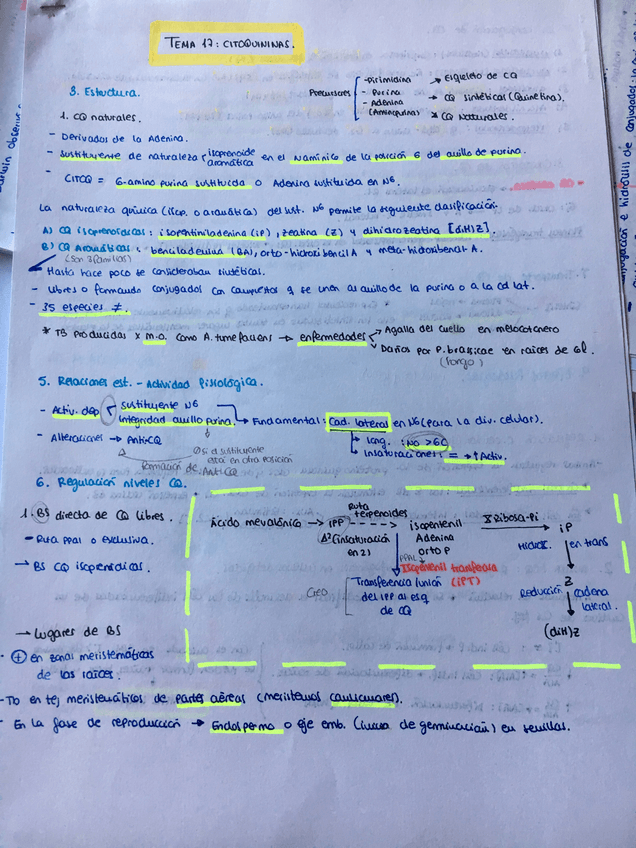 TEMA 17: CITOQUININAS.
3. Estructura.
Precursores
- Pirimidina → Esqueleto de CQ
- Purina → CQ sintéticas (Quinetina).
- Adenina (Aminopurina) → CQ Naturales.
1. CQ naturales.
- Derivados de la Adenina.
- Sustituyente de naturaleza isoprenoide aromática en el N amínico de la posición 6 del anillo de purina.
- CITOQ = 6-amino purina sustituida o Adenina sustituida en N6.
La naturaleza química (isop. o aromática) del sust. N6 permite la siguiente clasificación.
A) CQ isoprenoides: isopentiniladenina (iP), zeatina (Z) y dihidrozeatina [diH)Z].
B) CQ Aromáticas: benciladenina (BA), orto-hidroxibencil A y meta-hidroxibencil A.
(Son 3 familias)
Hasta hace poco se consideraban sintéticas.
- Libres o formando conjugados con compuestos q se unen al anillo de la purina o a la cd lat.
- 35 especies ≠.
* TB producidas x m.o. como A. tumefaciens → enfermedades → Agalla del cuello en melocotonero
→ Daños por P. brassicae en raíces de col.
(hongo)
5. Relaciones est. - Actividad fisiológica.
- Activ. dep sustituyente N6
integridad anillo purina. → Fundamental: Cad. lateral en N6 (para la div. celular).
- Alteraciones → Anti-CQ
→ Long.: No > 6C
→ Insaturaciones: = → ↑ Activ.
Ø si el sustituyente está en otra posición
formación de Anti CQ
6. Regulación niveles CQ.
1. BS directa de CQ libres.
- Ruta ppal o exclusiva.
→ BS CQ isoprenoidicas.
Ácido mevalónico → IPP Ruta terpenoides → isopentenil Adenina orto P → Ribosa-Pi → iP
Δ² (insaturación en 2)
PPAL
Isopentenil transferasa (iPT)
Transferencia (unión) del IPP al esq de CQ
Hidrox. en trans
Z
Reducción cadena lateral.
(diH)Z
→ Lugares de BS
- ⊕ en zonas meristemáticas de las raíces.
- Tb en tej meristemáticos de partes aéreas (meristemos caulinares).
- En la fase de reproducción → Endospermo o eje emb. (inicio de germinación) en semillas.